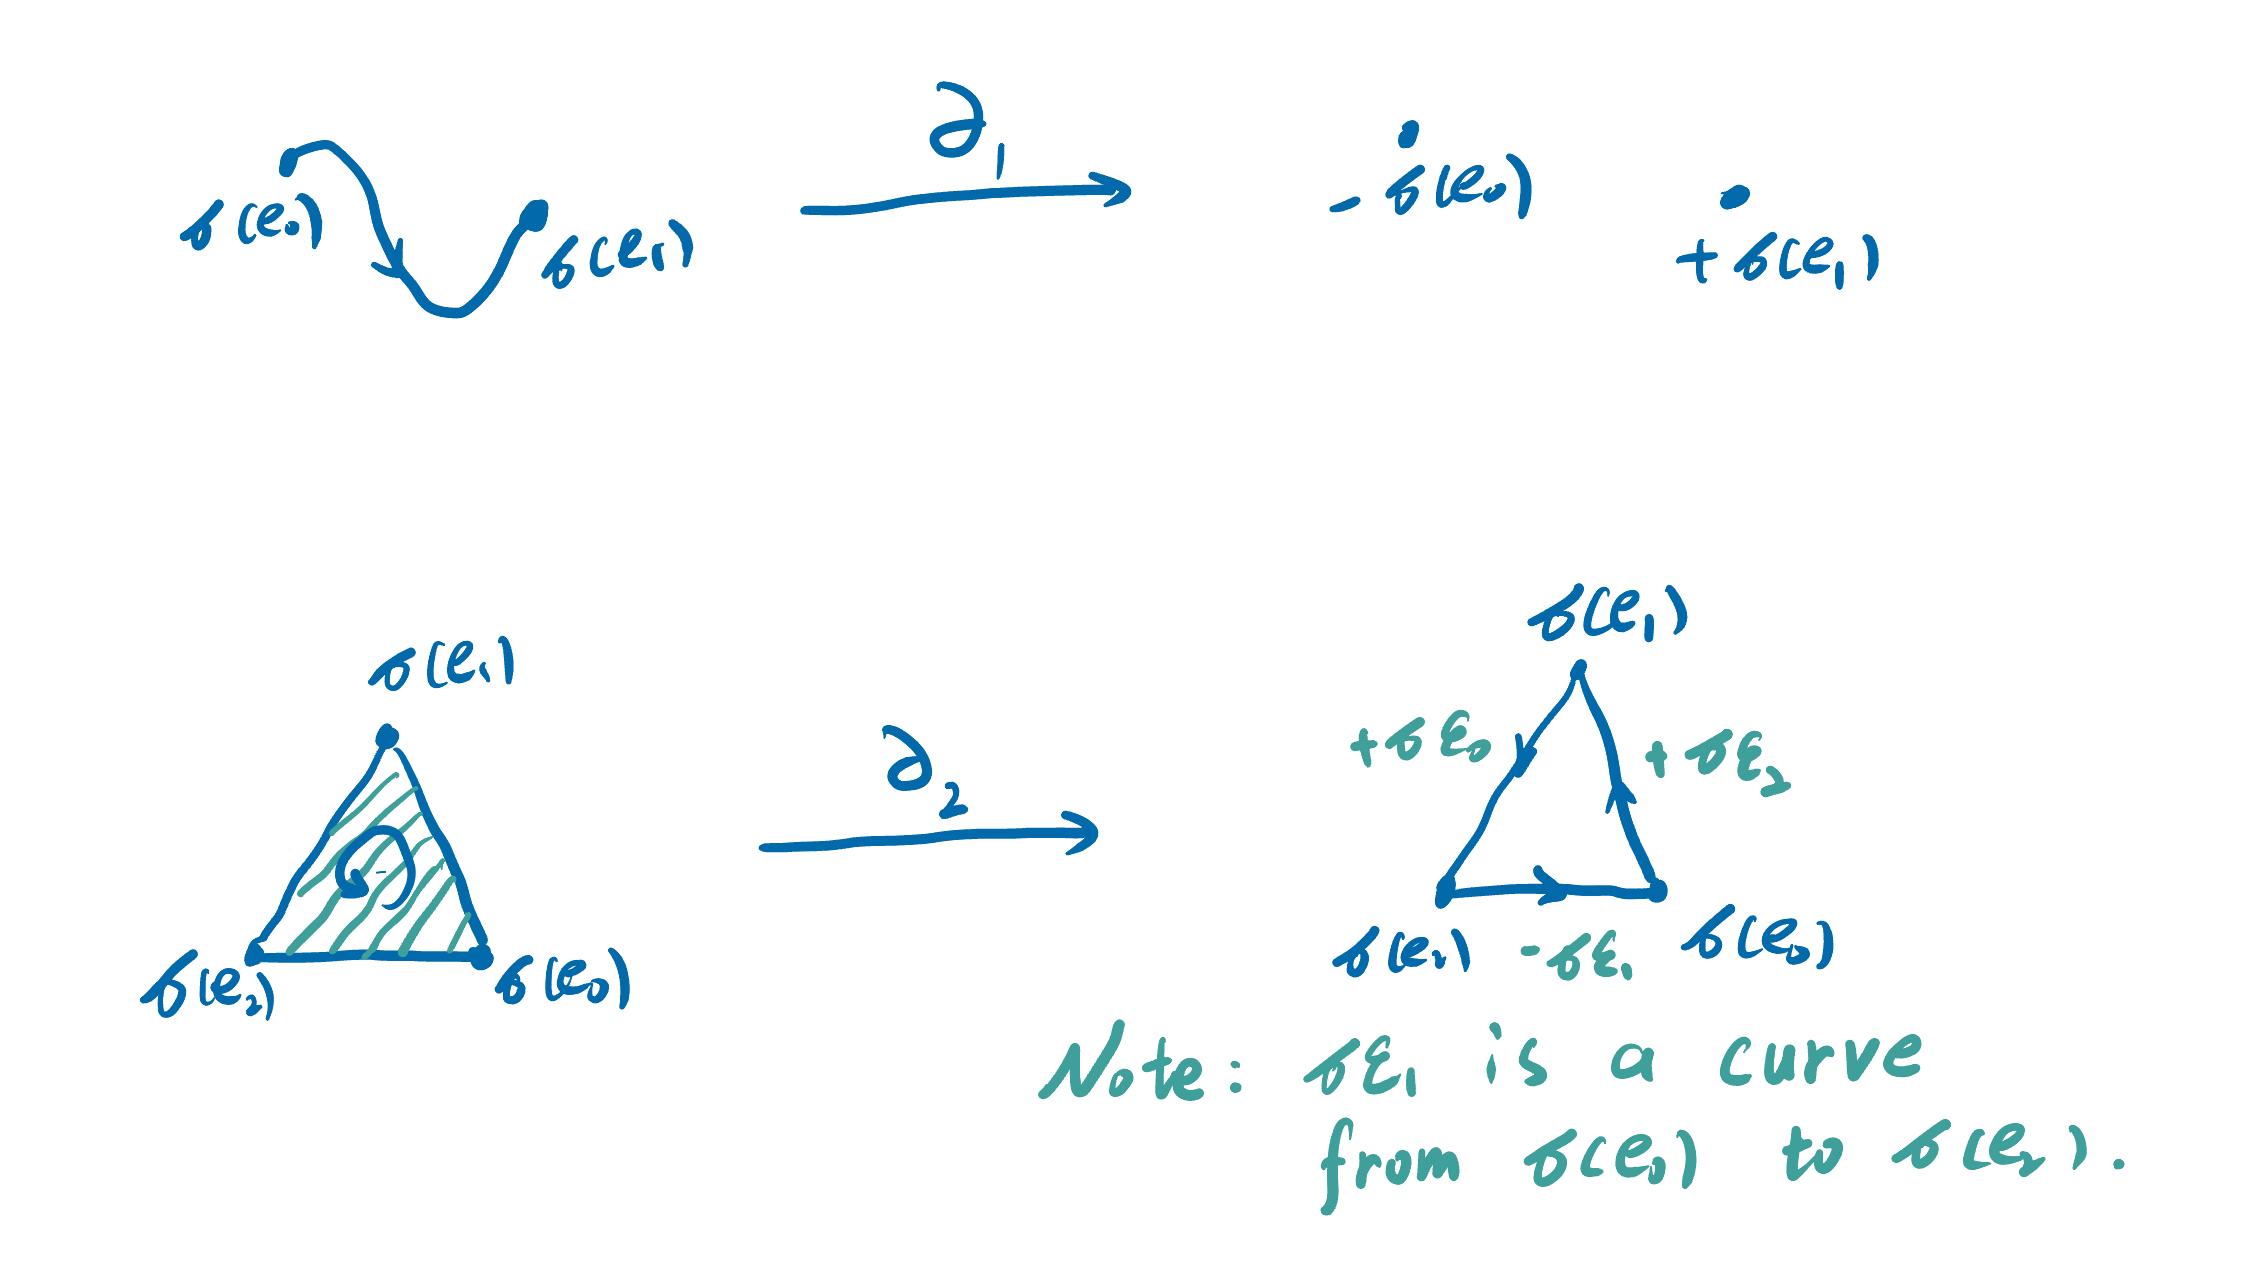 ∂₁
σ(e₀)
σ(e₁)
- σ(e₀)
+ σ(e₁)
σ(e₁)
σ(e₂)
σ(e₀)
∂₂
σ(e₁)
+σε₀
+σε₂
σ(e₂)
-σε₁
σ(e₀)
Note: σε₁ is a curve
from σ(e₀) to σ(e₂).